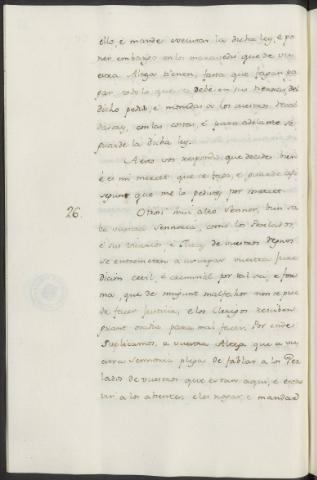 ello, é mande executar la dicha ley, é po
ner embargo en los maravedis que de vu
estra Alteza tienen, fasta que fagan pa
gar todo lo que se debe en sus tierras del
dicho pedido, é monedas á los vuestros
con las costas, é para adelante se
guarde la dicha ley.
A esto vos respondo que decides bien
é es mi merced que se faga, é guarde asi
segunt que me lo pedistes por merced.
26. Otrosi mui alto Sennor, bien sa
be vuestra Sennoria, como los Prelados,
é sus Vicarios, é Jueces de vuestros Regnos
se entrometen á usurpar vuestra juris
dicion cevil, é creminal por tal via, é for
ma, que de ningunt malfechor non se pue
de facer justicia, e los Clerigos resciben
grant osadia para mal facer. Por ende
Suplicamos, á vuestra Alteza que á vu
estra Sennoria plega de fablar á los Per
lados de vuestros que estan aqui, é escre
bir á los absentes, é les rogar, é mandar